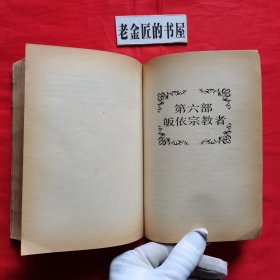 老金匠的书屋
第六部
皈依宗教者